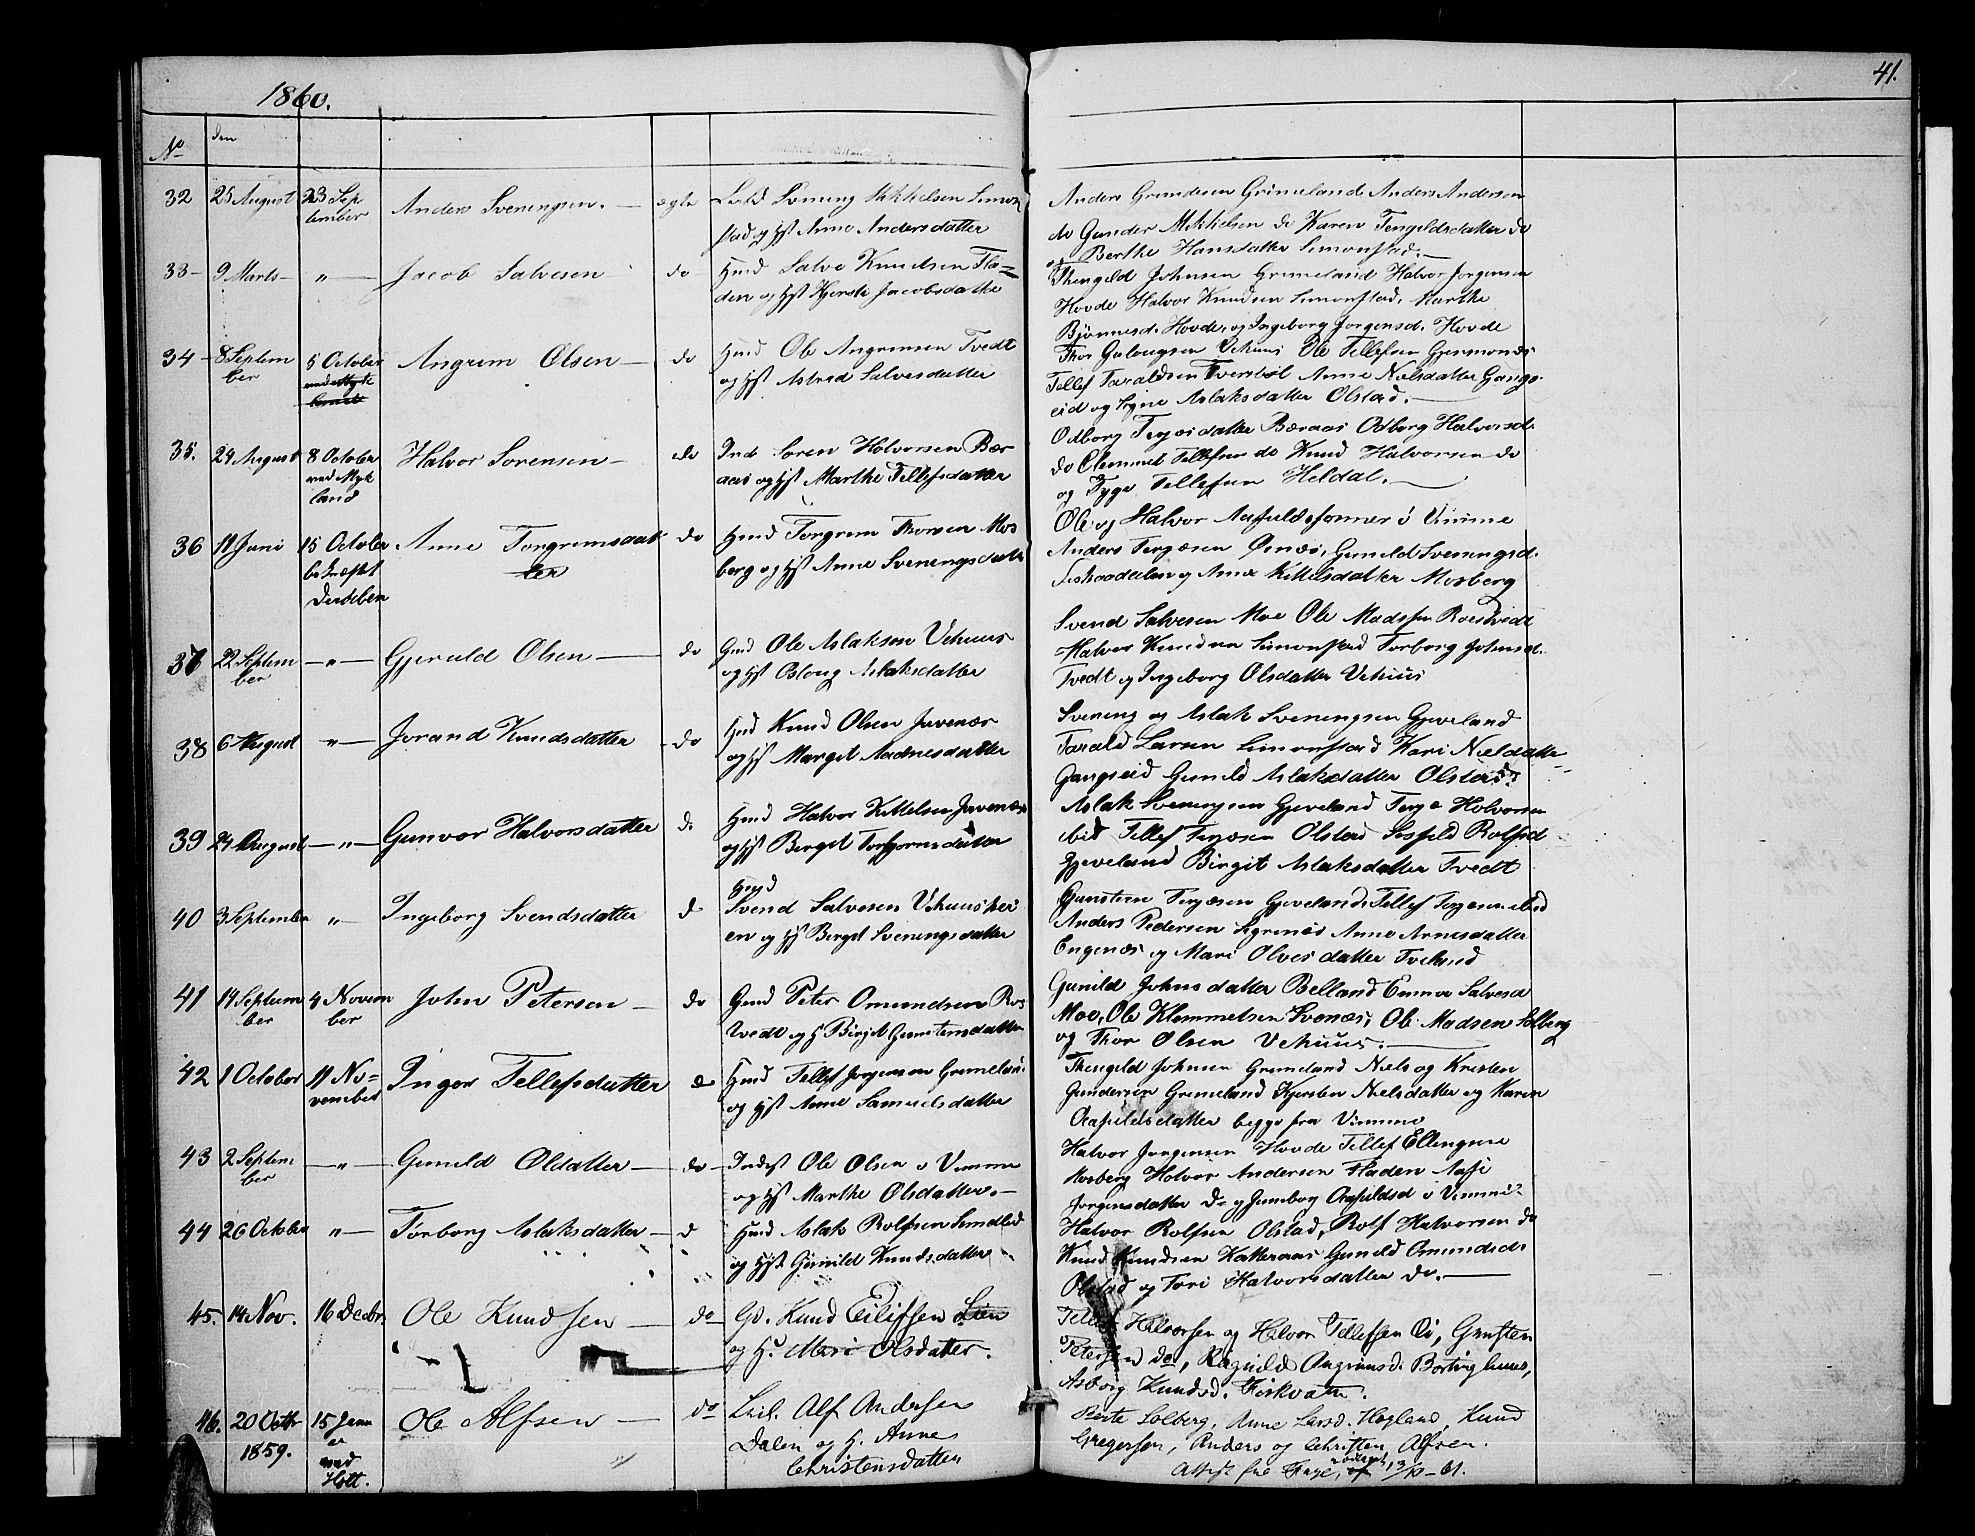 1860.
41.
No
den
32 25 August 23 Sep
tember
Anders Sveningsen. — ægte
Svening Mikkelsen Simon
stad og Hst Anne Andersdatter
Anders Grundesen Grimeland Anders Andersen
do Gunder Mikkelsen do Karen Tengildsdatter do
og Berthe Hansdatter Simonstad. —
33 — 9 Marts — " — Jacob Salvesen do
Hmd Salve Knudsen Fla=
den og Hst Kjersti Jacobsdatter
Thengild Johnsen Grimeland Halvor Jorgensen
Hovde Halvor Knudsen Simonstad, Marthe
Bjønnesd. Hovde, og Ingeborg Jorgensd. Hovde
34 — 8 Septem
ber
5 October
Angrim Olsen — do
Hmd Ole Angrimsen Tvedt
og Hst Astrid Salvesdatter
Thor Vehuus Ole Tellefsen
Tellef Taraldsen Anne Nielsdatter Gangs-
eid og Signe Aslaksdatter Olstad. —
35. 24 August 8 October
ved Myk
land
Halvor Sorensen — do
Ind Soren Halvorsen Bær
aas og Hst Marthe Tellefsdatter
Odborg Terjesdatter Bæraas Odborg Halvorsd.
do Clemmet Tellefsen do Knud Halvorsen do
og Tyge Tellefsen Heldal. —
36 11 Juni 15 October
Anne Torgrimsdat
ter
do
Hmd Torgrim Thorsen Mos
berg og Hst Anne Sveningsdatter
Ole og Halvor i Vimme
Anders Terjesen Gunild Sveningsd.
og Anne Kittelsdatter Mosberg
37 22 Septem
ber
— " — Gjeruld Olsen — do
Gmd Ole Aslaksen Vehuus
og Hst Osloug Aslaksdatter
Svend Salvesen Moe Ole Madsen Rosetvedt
Halvor Knudsen Simonstad Torborg Johnsd.
Tvedt og Ingeborg Olsdatter Vehuus
38 6 August " — Jorand Knudsdatter — do
Hmd Knud Olsen Jurenæs
og Hst Margit Aadnesdatter
Svening og Aslak Sveningsen Gjeveland
Tarald Larsen Simonstad Kari Nielsdatter
Gangseid Gunild Aslaksdatter Olstad.
39 24 August — " — Gunvor Halvorsdatter d.
Hmd Halvor Kittelsen Jurenæs
og Hst Bergit Torbjornsdatter
Aslak Sveningsen Gjeveland Terje Halvorsen
ibid Tellef Terjesen Olstad Sigfild Rolfsd
Gjeveland Birgit Aslaksdatter Tvedt
40 3 September " — Ingeborg Svendsdatter d
Hmd
Svend Salvesen Vehuushei
en og Hst Bergit Sveningsdatter
Gunsten Terjesen Gjeveland, Tellef Terjesen ibid
Anders Pedersen Anne Arnesdatter
Engenæs og Mari Olvesdatter Tveitund
41 14 Septem
ber
4 Novem
ber
John Petersen — do
Gmd Peter Omundsen Ros
tvedt og H Birgit Gunstensdatter
Gunild Johnsdatter Belland Emmer Salvesd
Moe, Ole Klemmetsen Svenæs, Ole Madsen Solberg
og Thor Olsen Vehuus. —
42 1 October 11 No=
vember
Inger Tellefsdatter d
Hmd Tellef Jorgensen Grimeland
og Hst Anne Samuelsdatter
Thengild Johnsen Grimeland Niels og Kristen
Gundersen Grimeland Kjersten Nielsdatter og Karen
Aasfildsdatter begge fra Vimme
43 2 Septem
ber
— " — Gunild Olsdatter — do —
Indst Ole Olsen i Vimme
og Hst Marthe Olsdatter. —
Halvor Jorgensen Hovde Tellef Ellingsen
Mosberg Halvor Andersen Fladen Aasi
Jorgensdatter do og Gunborg Aasfildsd i Vimme
44 26 October " — Torborg Aslaksdatter — d
Hmd Aslak Rolfsen
og Hst Gunild Knudsdatter
Halvor Rolfsen Olstad, Rolf Halvorsen do
Knud Knudsen Katteraas Gunild Omundsd
Olstad og Tori Halvorsdatter do. —
45. 14 Nov. 16 Decbr. Ole Knudsen — do
Gd. Knud Eilifsen Lien
og H. Mari Olsdatter.
Tellef Halvorsen og Halvor Tellefsen Lie, Gunsten
Petersen do, Ragnild Angrimsd.
Asborg Knudsd. Fiskvatn.
46. 20 Octbr
1859.
15 Janu
ar
ved
Hstt.
Ole Alfsen — do
Alf Andersen
Dalen og H. Anne
Christensdatter
Berte Solberg, Anne Larsd. Hogland, Knud
Gregersen, Anders og Christen Alfsen.
Attest fra 13/10 - 61.